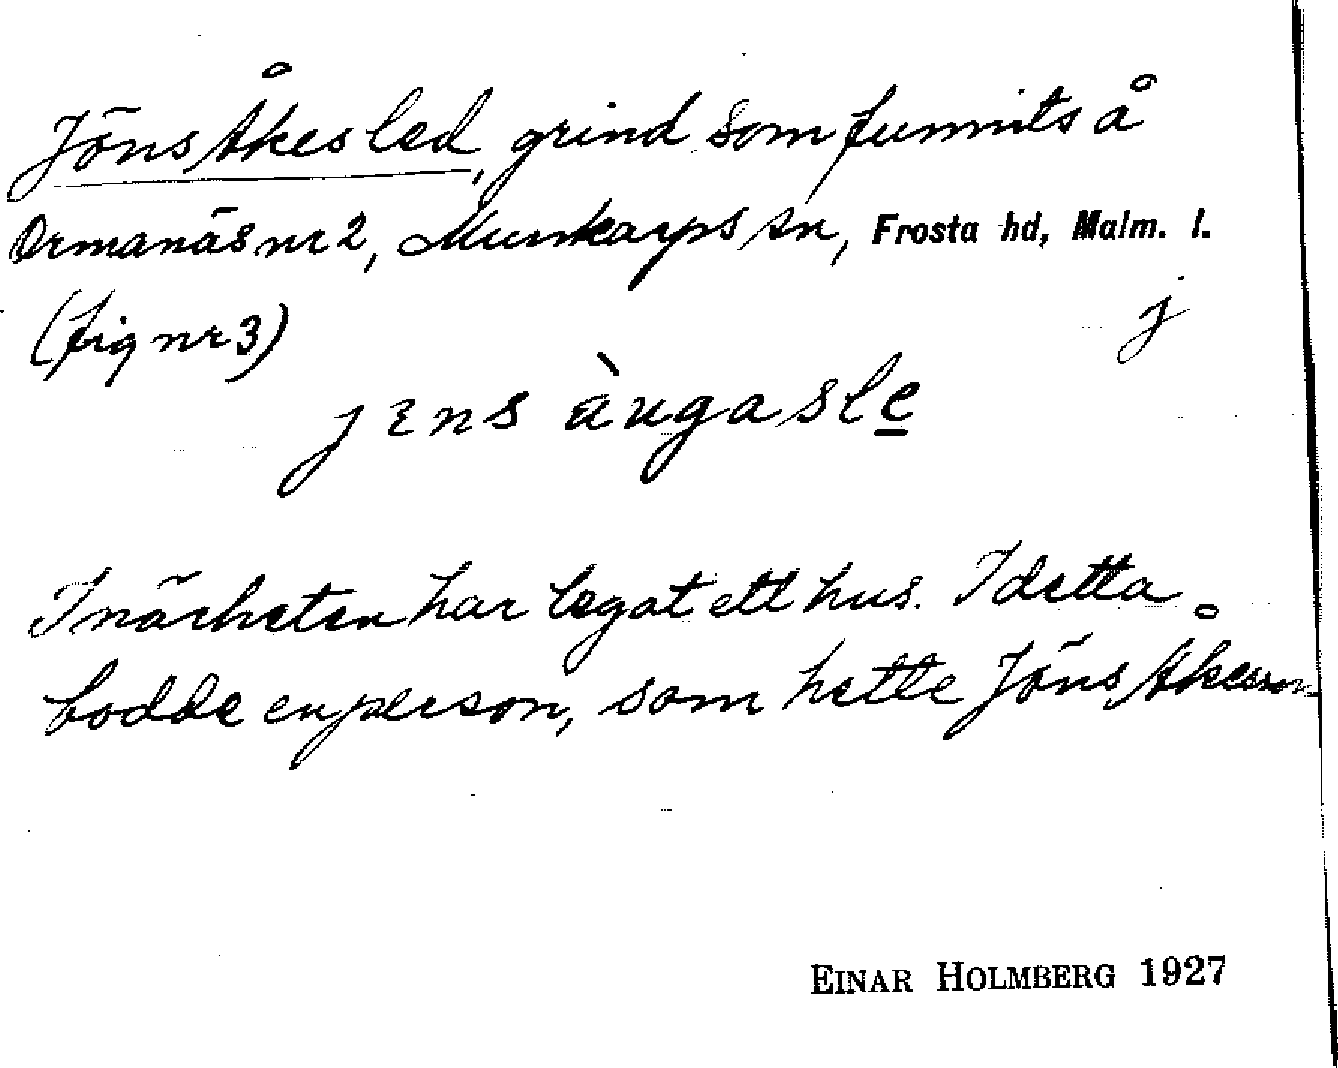 Jöns Åkes led, grind som funnits å
Ormanäs nr 2, Munkarps sn, Frosta hd, Malm. l.
(fig nr 3) j
jɛns àugasle
I närheten har legat ett hus. I detta
bodde en person, som hette Jöns Åkesson
EINAR HOLMBERG 1927